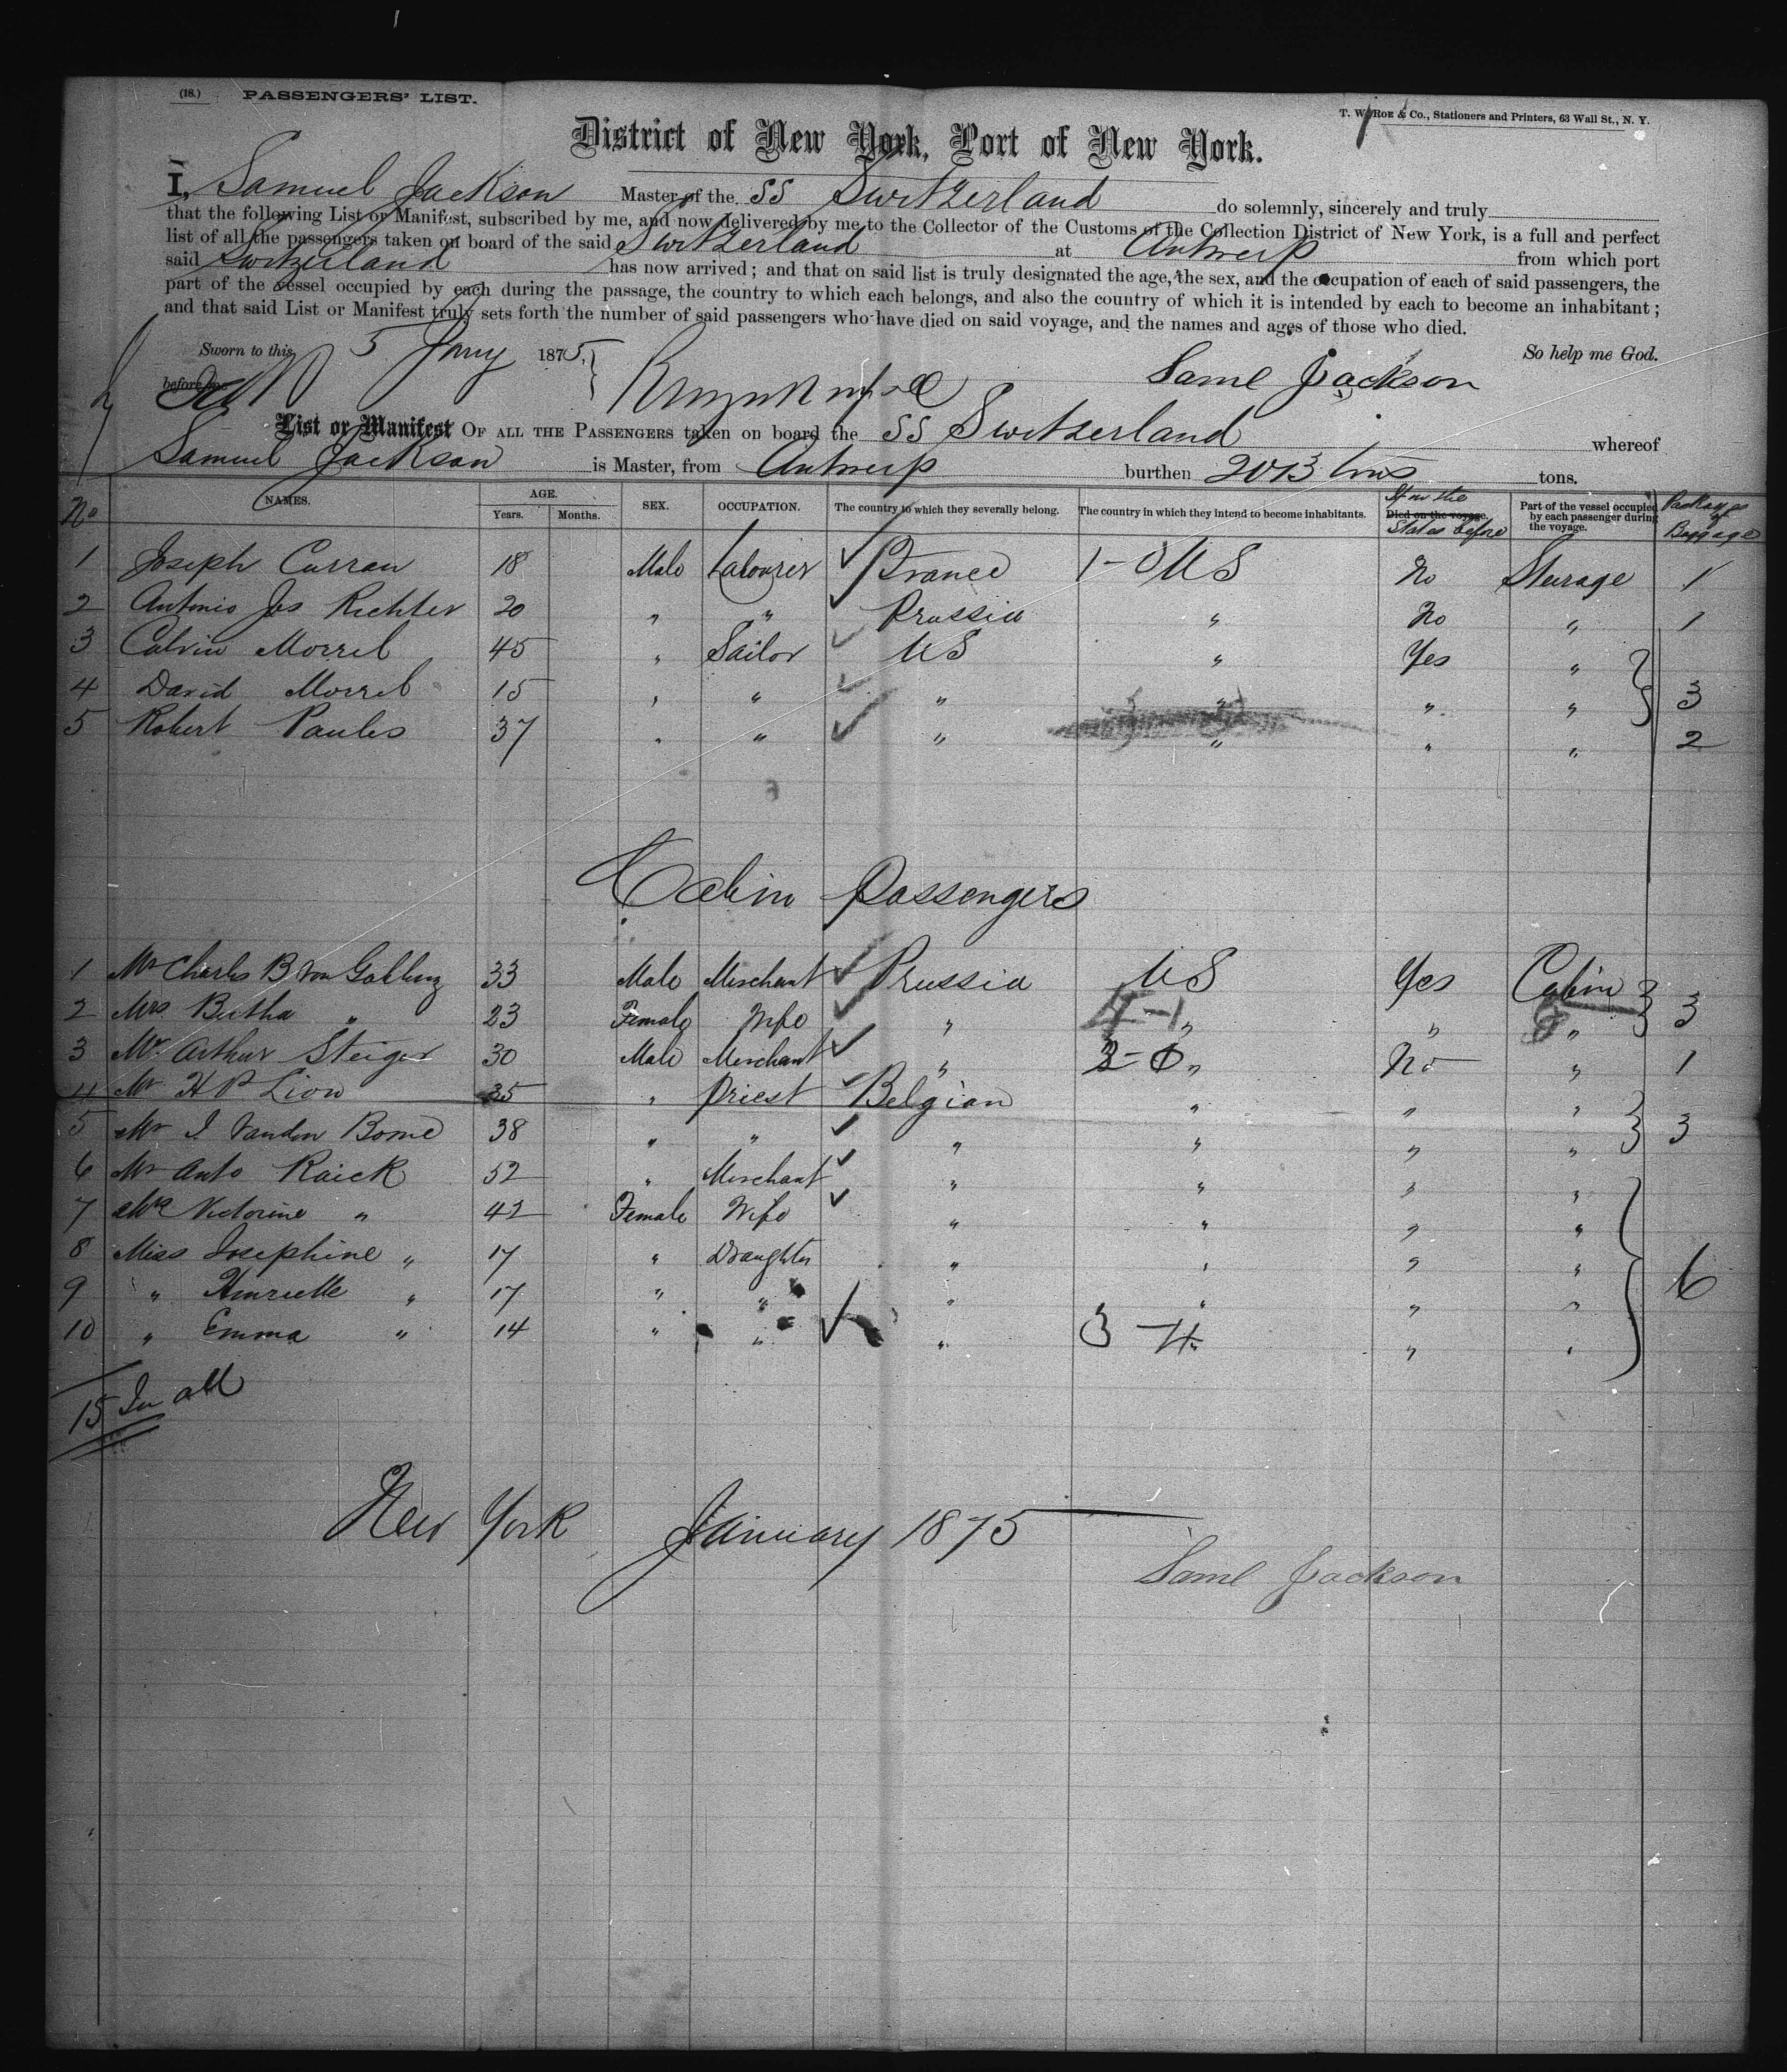 (18.) PASSENGERS' LIST.
T. W. Roe & Co., Stationers and Printers, 63 Wall St., N. Y.
District of New York, Port of New York.
I, Samuel Jackson Master of the SS Switzerland do solemnly, sincerely and truly
that the following List or Manifest, subscribed by me, and now delivered by me to the Collector of the Customs of the Collection District of New York, is a full and perfect
list of all the passengers taken on board of the said Switzerland at Antwerp from which port
said Switzerland has now arrived; and that on said list is truly designated the age, the sex, and the occupation of each of said passengers, the
part of the vessel occupied by each during the passage, the country to which each belongs, and also the country of which it is intended by each to become an inhabitant;
and that said List or Manifest truly sets forth the number of said passengers who have died on said voyage, and the names and ages of those who died.
Sworn to this 5 Jany 1875, So help me God.
before me Saml Jackson
List or Manifest OF ALL THE PASSENGERS taken on board the SS Switzerland whereof
Samuel Jackson is Master, from Antwerp burthen 2013 tons tons.
No NAMES. AGE. Years. Months. SEX. OCCUPATION. The country to which they severally belong. The country in which they intend to become inhabitants. Died on the voyage. If in the States before Part of the vessel occupied by each passenger during the voyage. Packages of Baggage
1 Joseph Curran 18 Male Labourer France 1-0 US No Steerage 1
2 Antonio Jos Richter 20 " " Prussia " No " 1
3 Calvin Morrel 45 " Sailor US " Yes "
4 David Morrel 15 " " " " " " 3
5 Robert Paules 37 " " " " " " 2
Cabin Passengers
1 Mr Charles B von Gablenz 33 Male Merchant Prussia US Yes Cabin
2 Mrs Bertha " 23 Female Wife " 4-1 " " " 3
3 Mr Arthur Steiger 30 Male Merchant " 2-0 " No " 1
4 Mr H P Lion 35 " Priest Belgian " " "
5 Mr I Vanden Borne 38 " " " " " " 3
6 Mr Anto Raick 52 " Merchant " " " "
7 Mrs Victorine " 42 Female Wife " " " "
8 Miss Josephine " 17 " Daughter " " " "
9 " Henriette " 17 " " " " " " 6
10 " Emma " 14 " " " 3-4 " " "
15 In all
New York January 1875
Saml Jackson